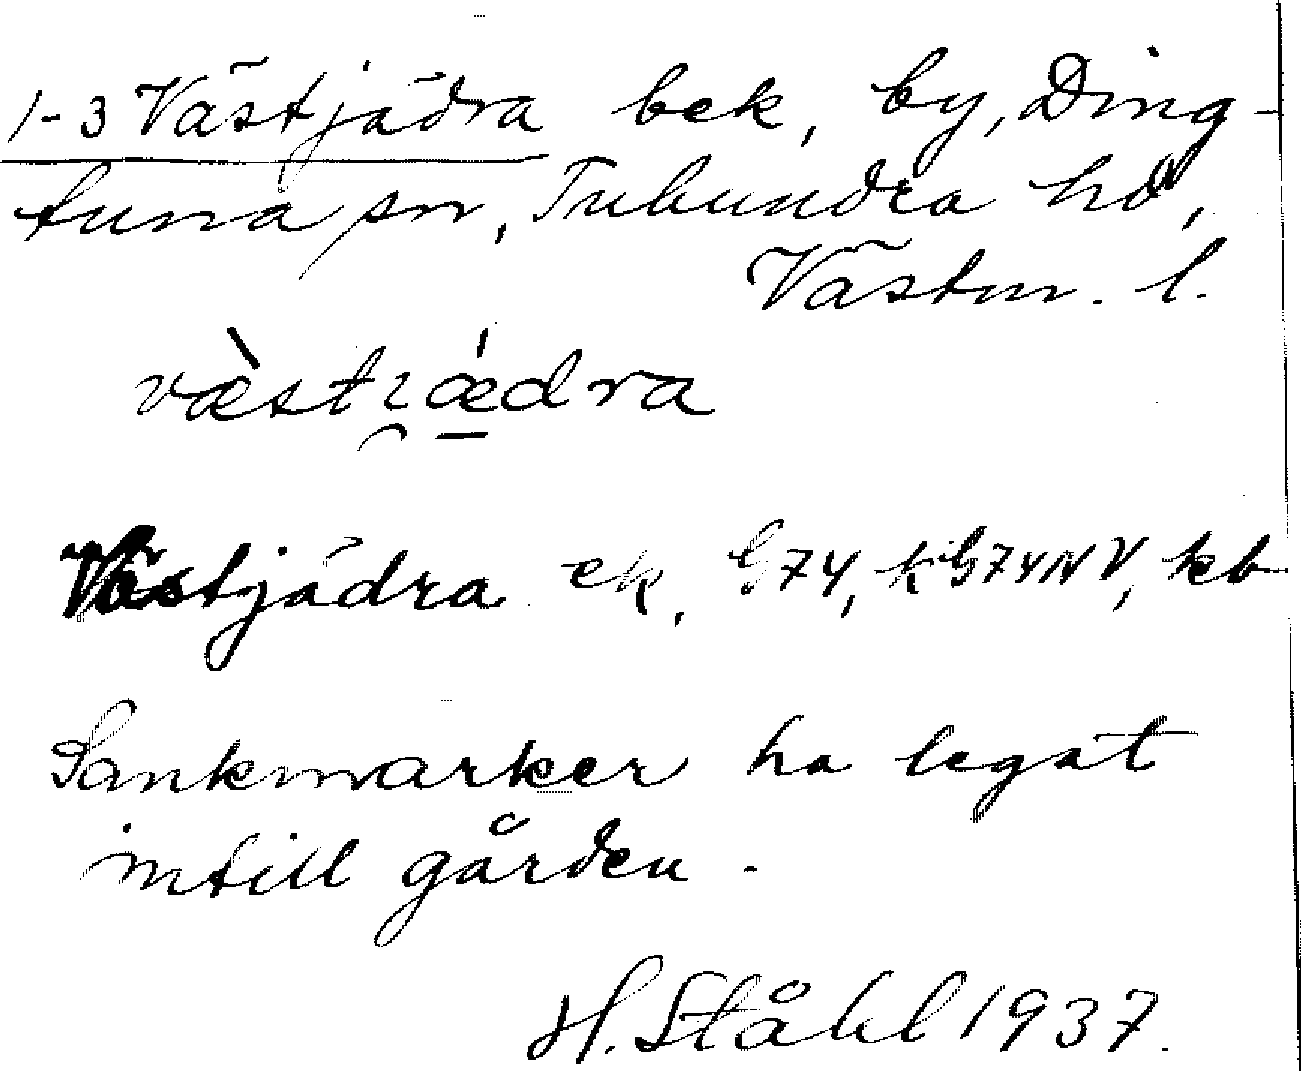 1-3 Västjädra bek, by, Ding-
tuna sn, Tuhundra hd,
Västm. l.
Västjädra ek, G74, kG74NV, kb
Sankmarker ha legat
intill gården.
H. Ståhl 1937.